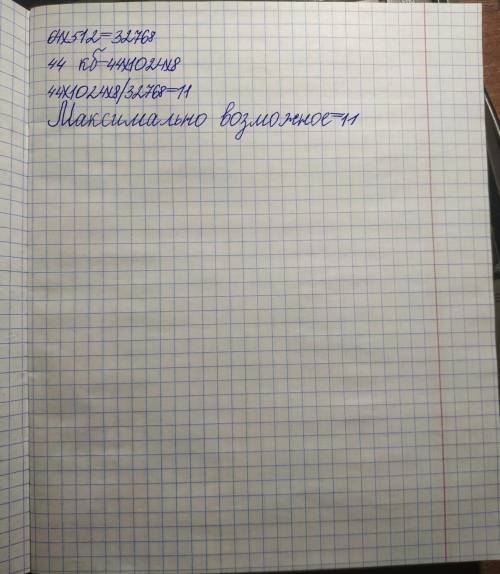 64х512=32768
44 кб-44х1024х8
44х1024х8/32768=11
Максимально возможное=11